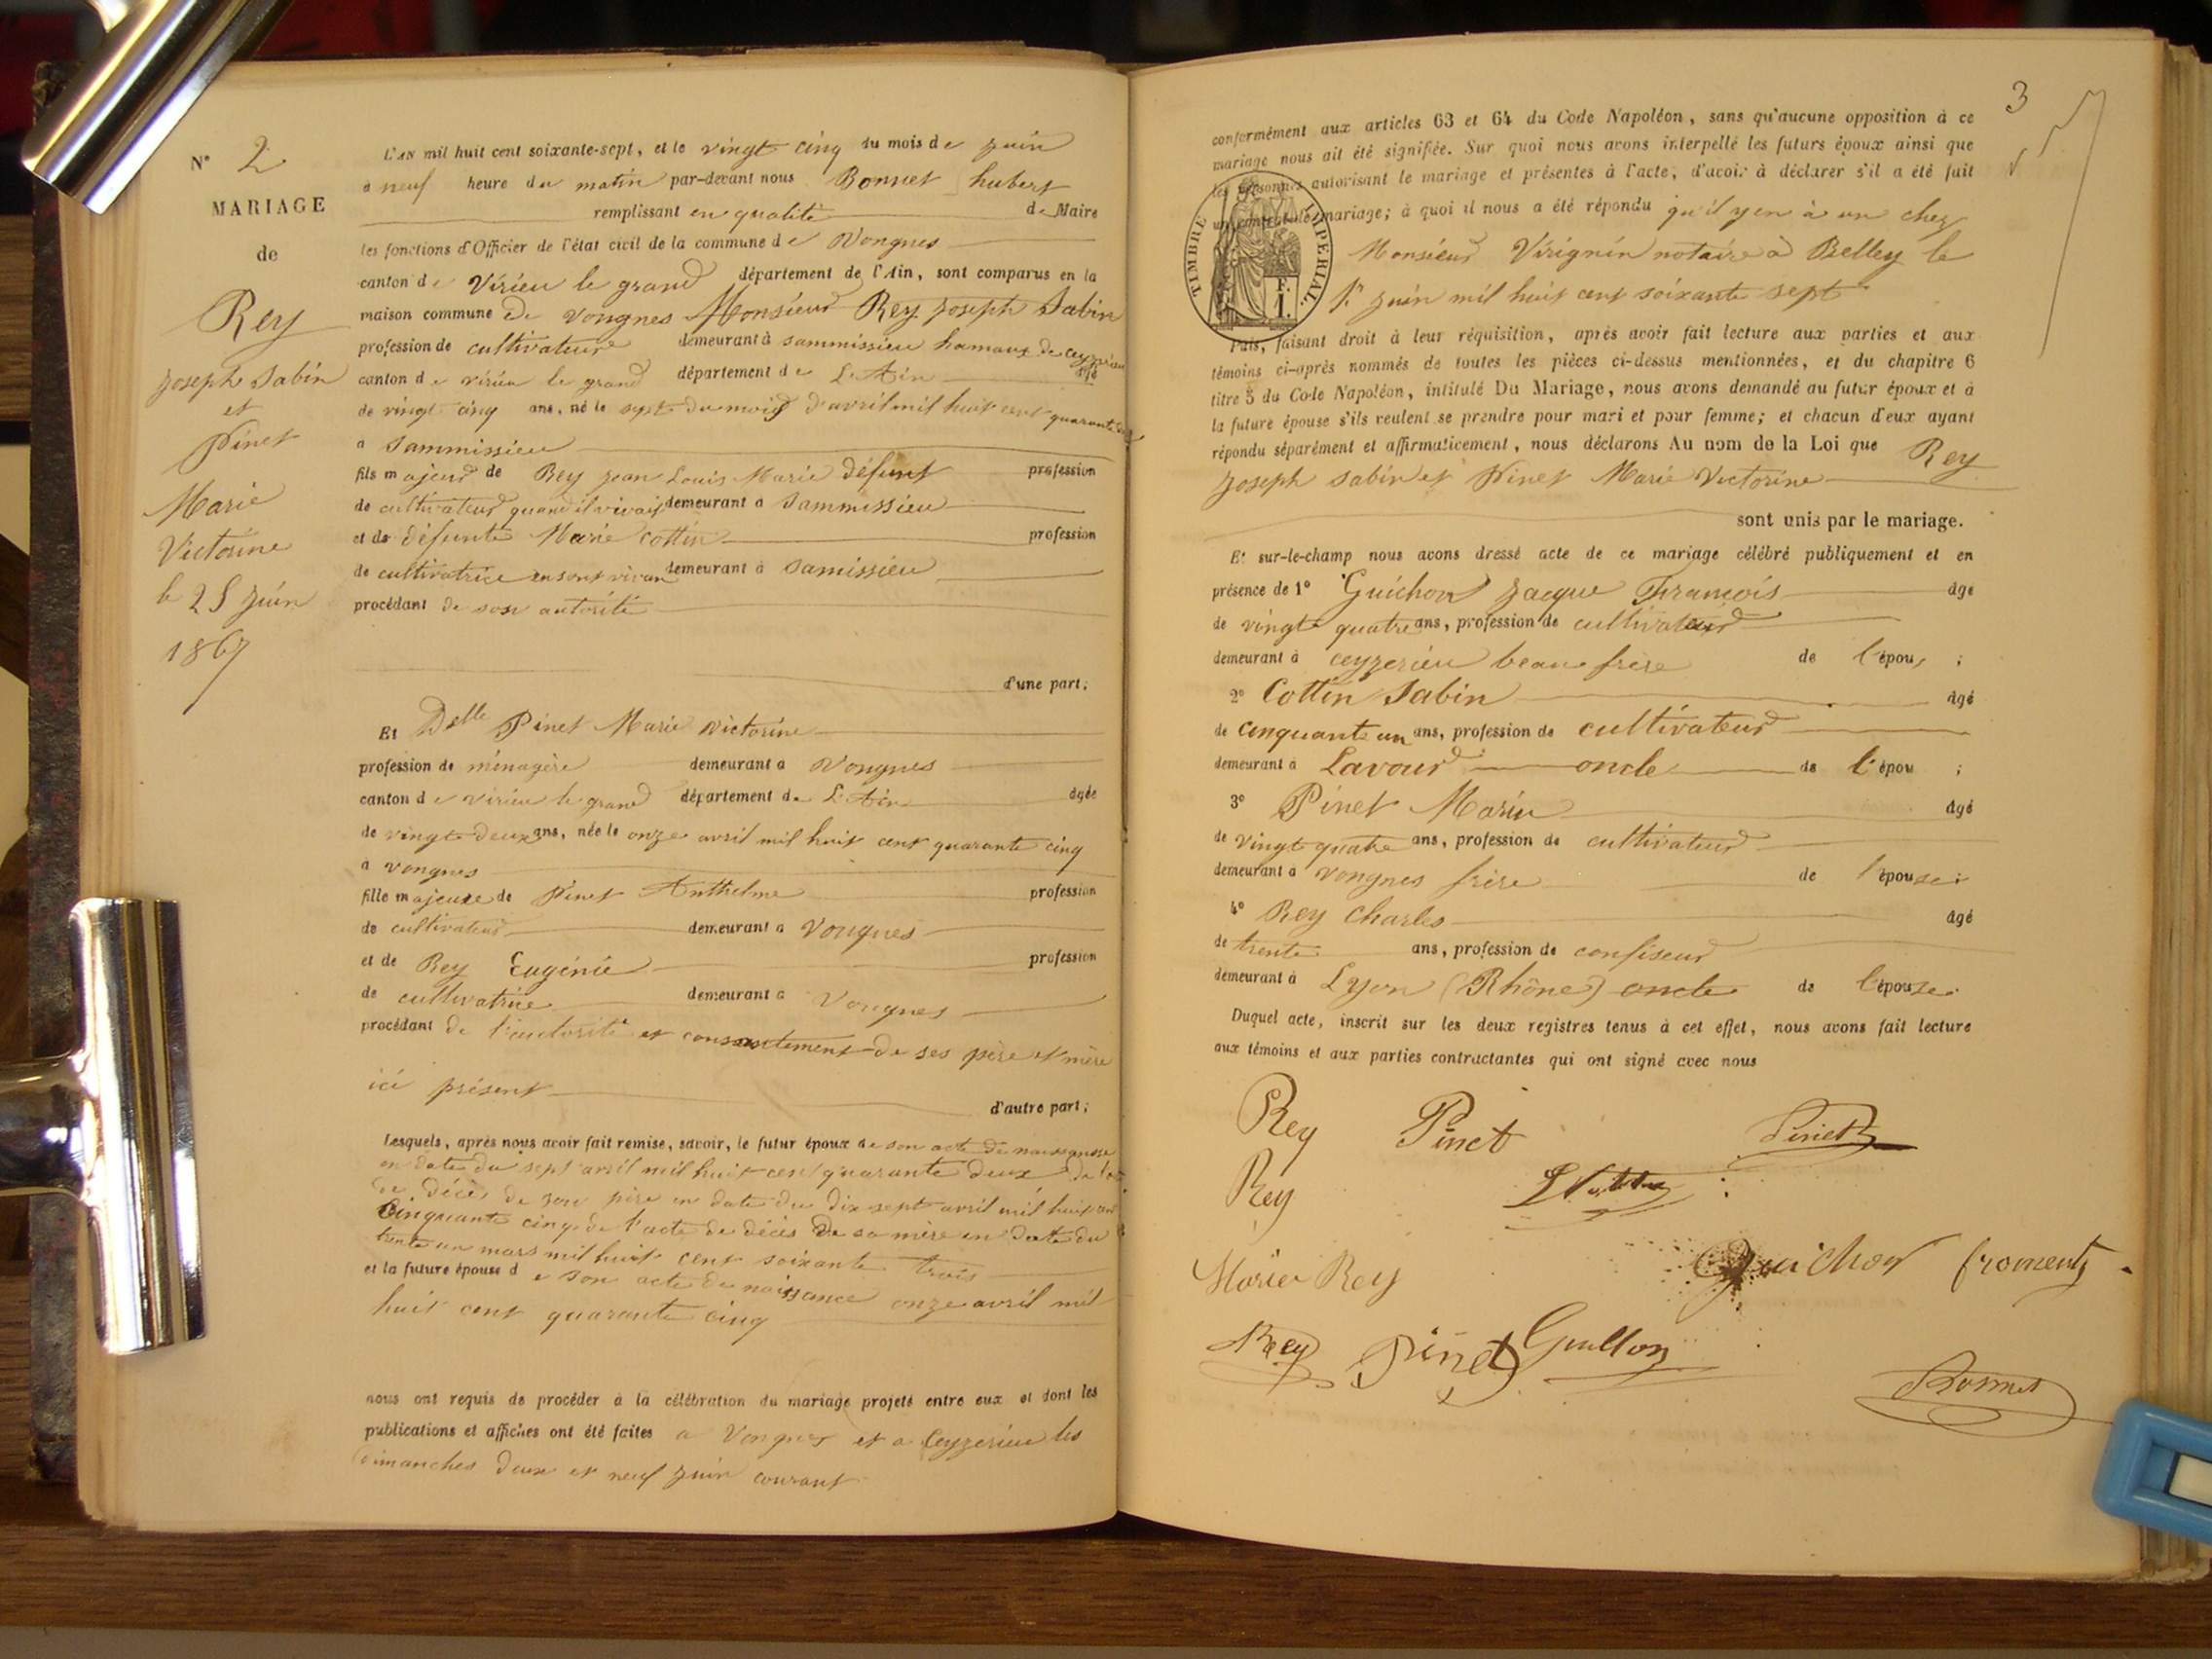 N° 2
MARIAGE
de
Rey
joseph Sabin
et
Pinet
Marie
Victorine
le 25 juin
1867
L'AN mil huit cent soixante-sept, et le vingt cinq du mois de juin
a neuf heure du matin par-devant nous Bonnet hubert
remplissant en qualité de Maire
les fonctions d'Officier de l'état civil de la commune de Vongnes
canton de Virieu le grand département de l'Ain, sont comparus en la
maison commune de vongnes Monsieur Rey joseph Sabin
profession de cultivateur demeurant à sammissieu hamaux de ceyzerieu
canton de virieu le grand département de L'Ain âgé
de vingt cinq ans, né le sept du mois d'avril mil huit cent quarante deux
a Sammissieu
fils majeur de Rey jean Louis Marie défunt profession
de cultivateur quand il vivait demeurant a Sammissieu
et de défunte Marie Cottin profession
de cultivatrice en sont vivan demeurant à Samissieu
procédant de son autorité
d'une part;
Et Delle Pinet Marie victorine
profession de ménagère demeurant a Vongnes
canton de virieu le grand département de L'Ain âgée
de vingt deux ans, née le onze avril mil huit cent quarante cinq
a vongnes
fille majeure de Pinet Anthelme profession
de cultivateur demeurant a Vongnes
et de Rey Eugénie profession
de cultivatrice demeurant a Vongnes
procédant de l'autorité et consentement de ses père et mère
ici présent
d'autre part;
Lesquels, après nous avoir fait remise, savoir, le futur époux de son acte de naissance
en date du sept avril mil huit cent quarante deux de l'acte
de décès de son père en date du dix sept avril mil huit cent
Cinquante cinq de l'acte de décès de sa mère en date du
trente un mars mil huit cent soixante trois
et la future épouse de son acte de naissance onze avril mil
huit cent quarante cinq
nous ont requis de procéder à la célébration du mariage projeté entre eux et dont les
publications et affiches ont été faites a Vongnes et a Ceyzerieu les
dimanches deux et neuf juin courant
3
conformément aux articles 63 et 64 du Code Napoléon, sans qu'aucune opposition à ce
mariage nous ait été signifiée. Sur quoi nous avons interpellé les futurs époux ainsi que
les personnes autorisant le mariage et présentes à l'acte, d'avoir à déclarer s'il a été fait
un contrat de mariage; à quoi il nous a été répondu qu'il y en à un chez
Monsieur Virignin notaire à Belley le
1er juin mil huit cent soixante sept
TIMBRE IMPERIAL.
F.
1.
Puis, faisant droit à leur réquisition, après avoir fait lecture aux parties et aux
témoins ci-après nommés de toutes les pièces ci-dessus mentionnées, et du chapitre 6
titre 5 du Code Napoléon, intitulé Du Mariage, nous avons demandé au futur époux et à
la future épouse s'ils veulent se prendre pour mari et pour femme; et chacun d'eux ayant
répondu séparément et affirmativement, nous déclarons Au nom de la Loi que Rey
joseph sabin et Pinet Marie Victorine
sont unis par le mariage.
Et sur-le-champ nous avons dressé acte de ce mariage célébré publiquement et en
présence de 1° Guichon jacque François âgé
de vingt quatre ans, profession de cultivateur
demeurant à ceyzerieu beau frère de l'époux ;
2° Cottin Sabin âgé
de cinquante un ans, profession de cultivateur
demeurant à Lavour oncle de l'épou ;
3° Pinet Marin âgé
de vingt quatre ans, profession de cultivateur
demeurant à vongnes frère de l'épouse;
4° Rey Charles âgé
de trente ans, profession de confiseur
demeurant à Lyon (Rhône) oncle de l'épouse.
Duquel acte, inscrit sur les deux registres tenus à cet effet, nous avons fait lecture
aux témoins et aux parties contractantes qui ont signé avec nous
Rey Pinet Pinet
Rey
Marie Rey Guichon froment
Rey Pinet Guillon
Bonnet